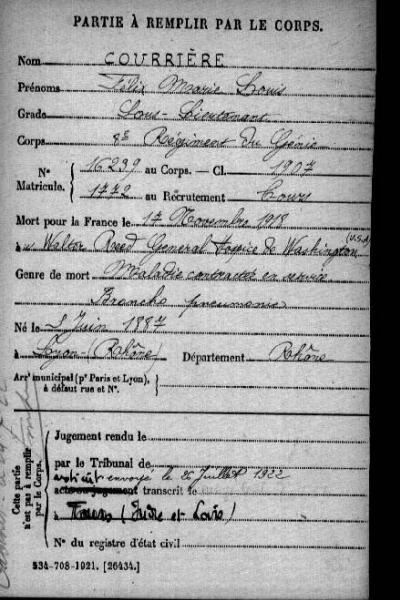 PARTIE À REMPLIR PAR LE CORPS.
Nom COURRIÈRE
Prénoms Félix Marie Louis
Grade Sous-Lieutenant
Corps 8e Régiment du Génie
N° Matricule. { 16239 au Corps. — Cl. 1907
1772 au Recrutement Tours
Mort pour la France le 17 Novembre 1918
à Walter Reed General Hospice de Washington (U.S.A)
Genre de mort Maladie contractée en service
Broncho pneumonie
Né le 5 Juin 1887
à Lyon (Rhône) Département Rhône
Arr' municipal (p' Paris et Lyon),
à défaut rue et N°.
Cette partie n'est pas à remplir par le Corps.
Jugement rendu le
par le Tribunal de
envoyé le 26 Juillet 1922
acte ou jugement transcrit le
à Tours (Indre et Loire)
N° du registre d'état civil
534-708-1921. [26434.]